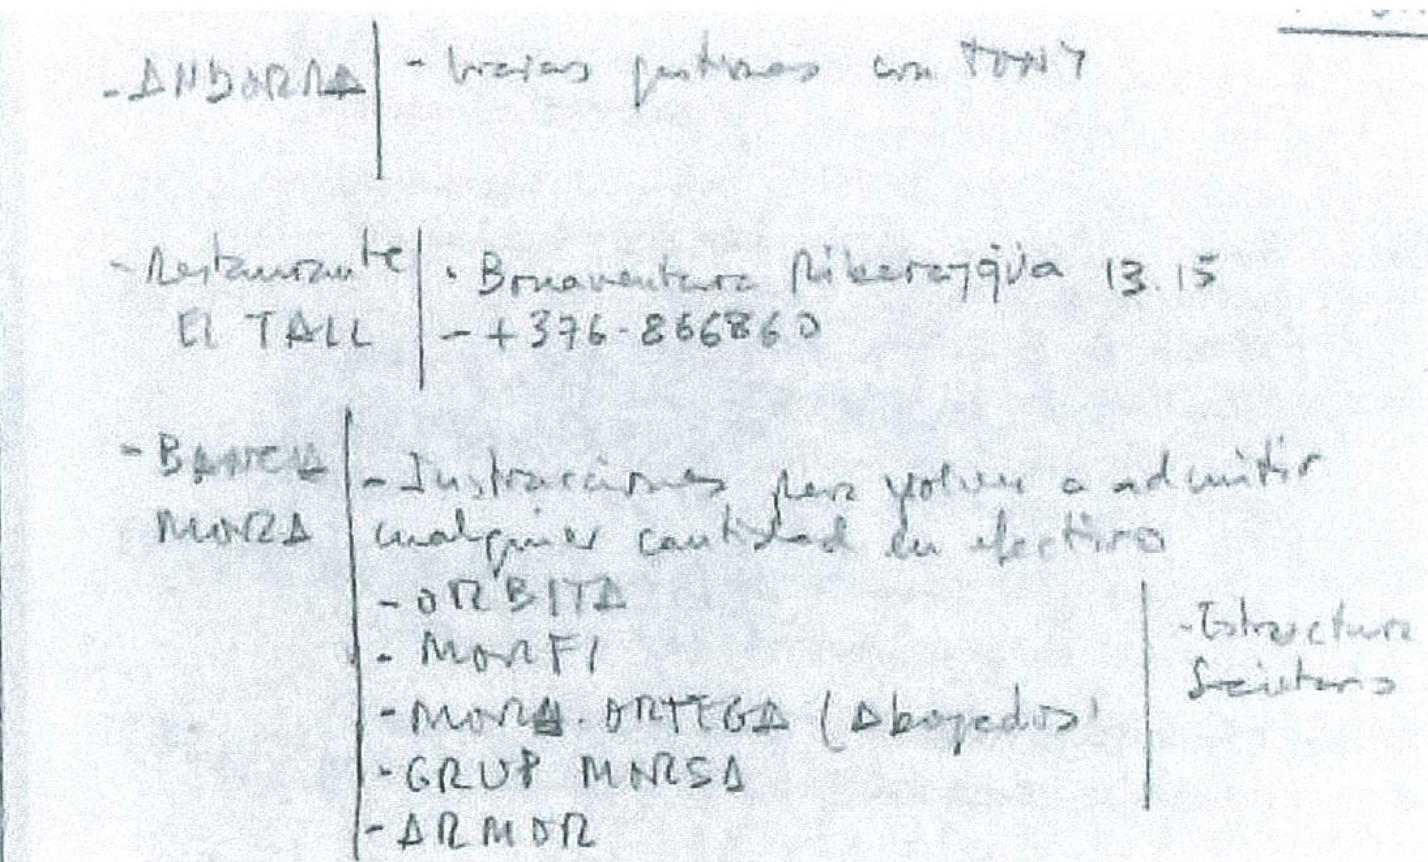 - ANDORRA | - Varias gestiones con TONY
- Restaurante | - Bonaventura Riberaygüa 13.15
EL TALL | - +376-866860
- BANCA | - Instrucciones para volver a admitir
MORA | cualquier cantidad en efectivo
- ORBITA
- MORFI | - Estructura
- MORA-ORTEGA (Abogados) | Societaria
- GRUP MORSA
- ARMOR